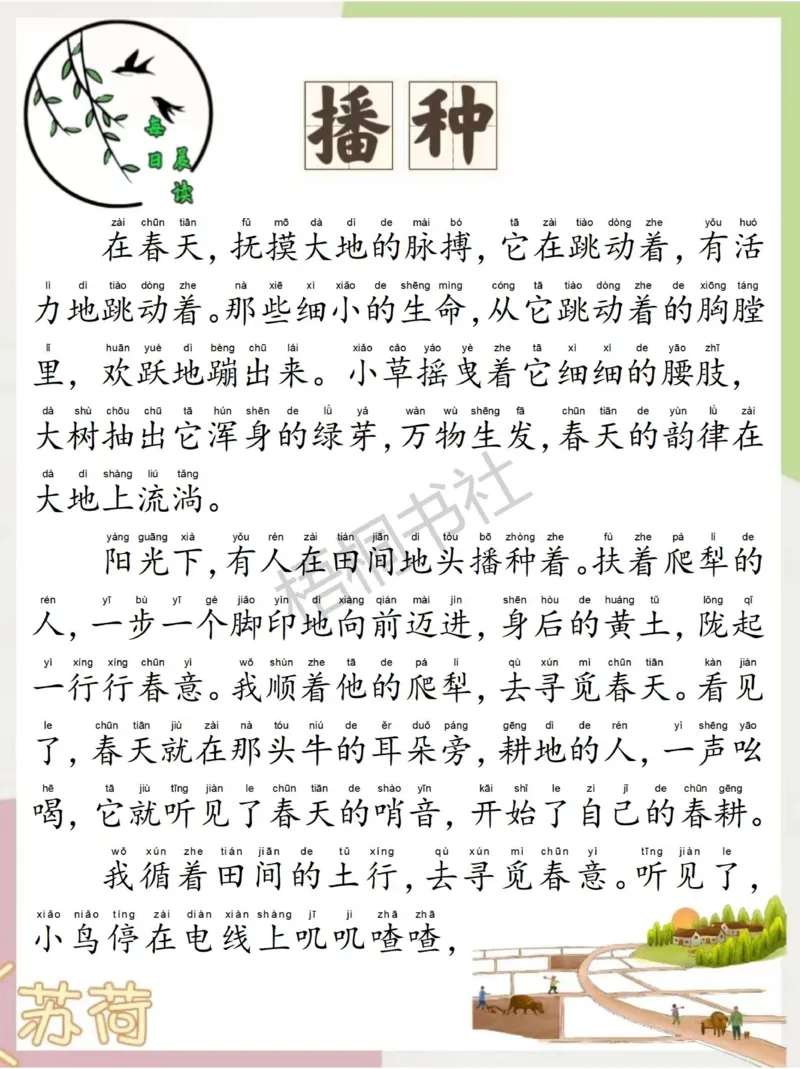 每日晨读
播种
zài chūn tiān fǔ mō dà dì de mài bó tā zài tiào dòng zhe yǒu huó
在春天，抚摸大地的脉搏，它在跳动着，有活
lì dì tiào dòng zhe nà xiē xì xiǎo de shēng mìng cóng tā tiào dòng zhe de xiōng táng
力地跳动着。那些细小的生命，从它跳动着的胸膛
lǐ huān yuè dì bèng chū lái xiǎo cǎo yáo yè zhe tā xì xi de yāo zhī
里，欢跃地蹦出来。小草摇曳着它细细的腰肢，
dà shù chōu chū tā hún shēn de lǜ yá wàn wù shēng fā chūn tiān de yùn lǜ zài
大树抽出它浑身的绿芽，万物生发，春天的韵律在
dà dì shàng liú tǎng
大地上流淌。
yáng guāng xià yǒu rén zài tián jiān dì tóu bō zhòng zhe fú zhe pá lí de
阳光下，有人在田间地头播种着。扶着爬犁的
rén yī bù yī gè jiǎo yìn dì xiàng qián mài jìn shēn hòu de huáng tǔ lǒng qǐ
人，一步一个脚印地向前迈进，身后的黄土，陇起
yì xíng xíng chūn yì wǒ shùn zhe tā de pá lí qù xún mì chūn tiān kàn jiàn
一行行春意。我顺着他的爬犁，去寻觅春天。看见
le chūn tiān jiù zài nà tóu niú de ěr duǒ páng gēng dì de rén yì shēng yāo
了，春天就在那头牛的耳朵旁，耕地的人，一声吆
hē tā jiù tīng jiàn le chūn tiān de shào yīn kāi shǐ le zì jǐ de chūn gēng
喝，它就听见了春天的哨音，开始了自己的春耕。
wǒ xún zhe tián jiān de tǔ xíng qù xún mì chūn yì tīng jiàn le
我循着田间的土行，去寻觅春意。听见了，
xiǎo niǎo tíng zài diàn xiàn shàng jī ji zhā zhā
小鸟停在电线上叽叽喳喳，
梧桐书社
苏荷